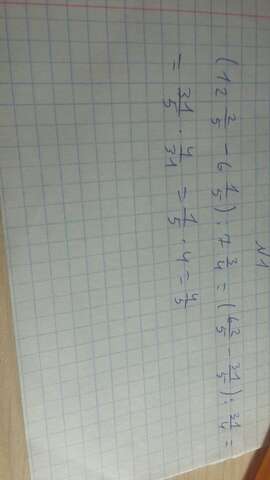 №1
(12 2/5 - 6 1/5) : 7 3/4 = (62/5 - 31/5) : 31/4 =
= 31/5 · 4/31 = 1/5 · 4 = 4/5